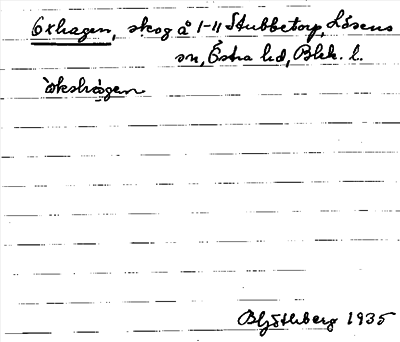 Oxhagen, skog å 1-11 Stubbetorp, Lösens
sn, Östra hd, Blek. l.
òkshàgen
1935